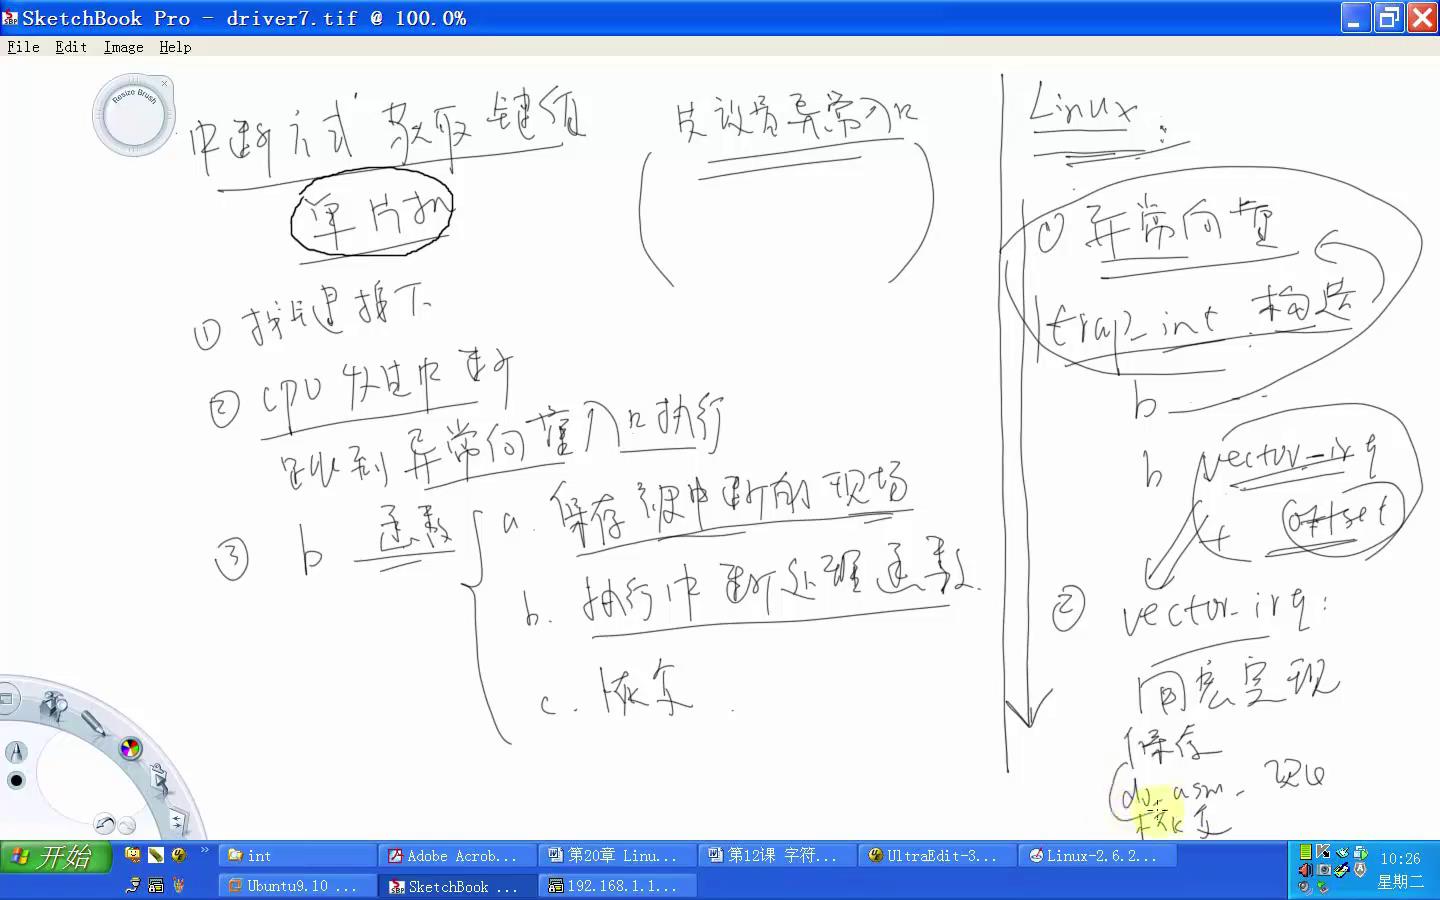 SketchBook Pro - driver7.tif @ 100.0%
File Edit Image Help
Resize Brush
中断方式获取键值
单片机
① 按键按下
② CPU发生中断
跳到异常向量入口执行
③ b 函数
a. 保存被中断的现场
b. 执行中断处理函数.
c. 恢复.
设置异常入口
Linux
① 异常向量
trap_init 构造
b
b vector_irq
+ offset
② vector_irq:
用宏实现
保存
恢复
开始
int
Adobe Acrob...
第20章 Linu...
第12课 字符...
UltraEdit-3...
Linux-2.6.2...
Ubuntu9.10 ...
SketchBook ...
192.168.1.1...
10:26
星期二